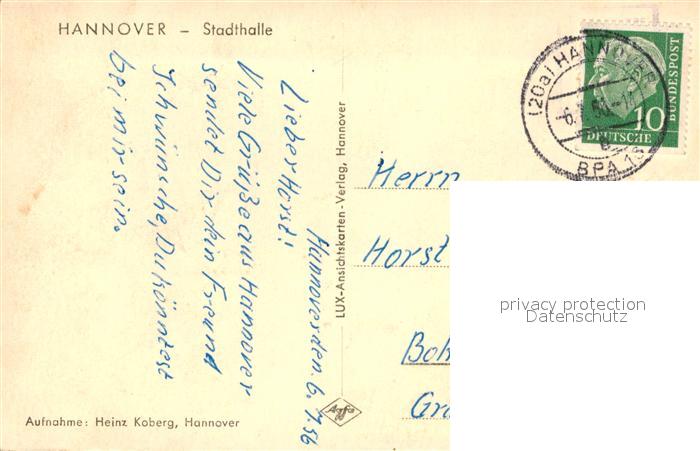 HANNOVER – Stadthalle
Hannover den 6. 7. 56
Lieber Horst!
Viele Grüße aus Hannover
sendet Dir dein Freund
Ich wünsche, Du könntest
bei mir sein.
Aufnahme: Heinz Koberg, Hannover
LUX-Ansichtskarten-Verlag, Hannover
Agfa
(20a) HANNOVER
BPA 15
10
DEUTSCHE
BUNDESPOST
Herrn
Horst
privacy protection
Datenschutz